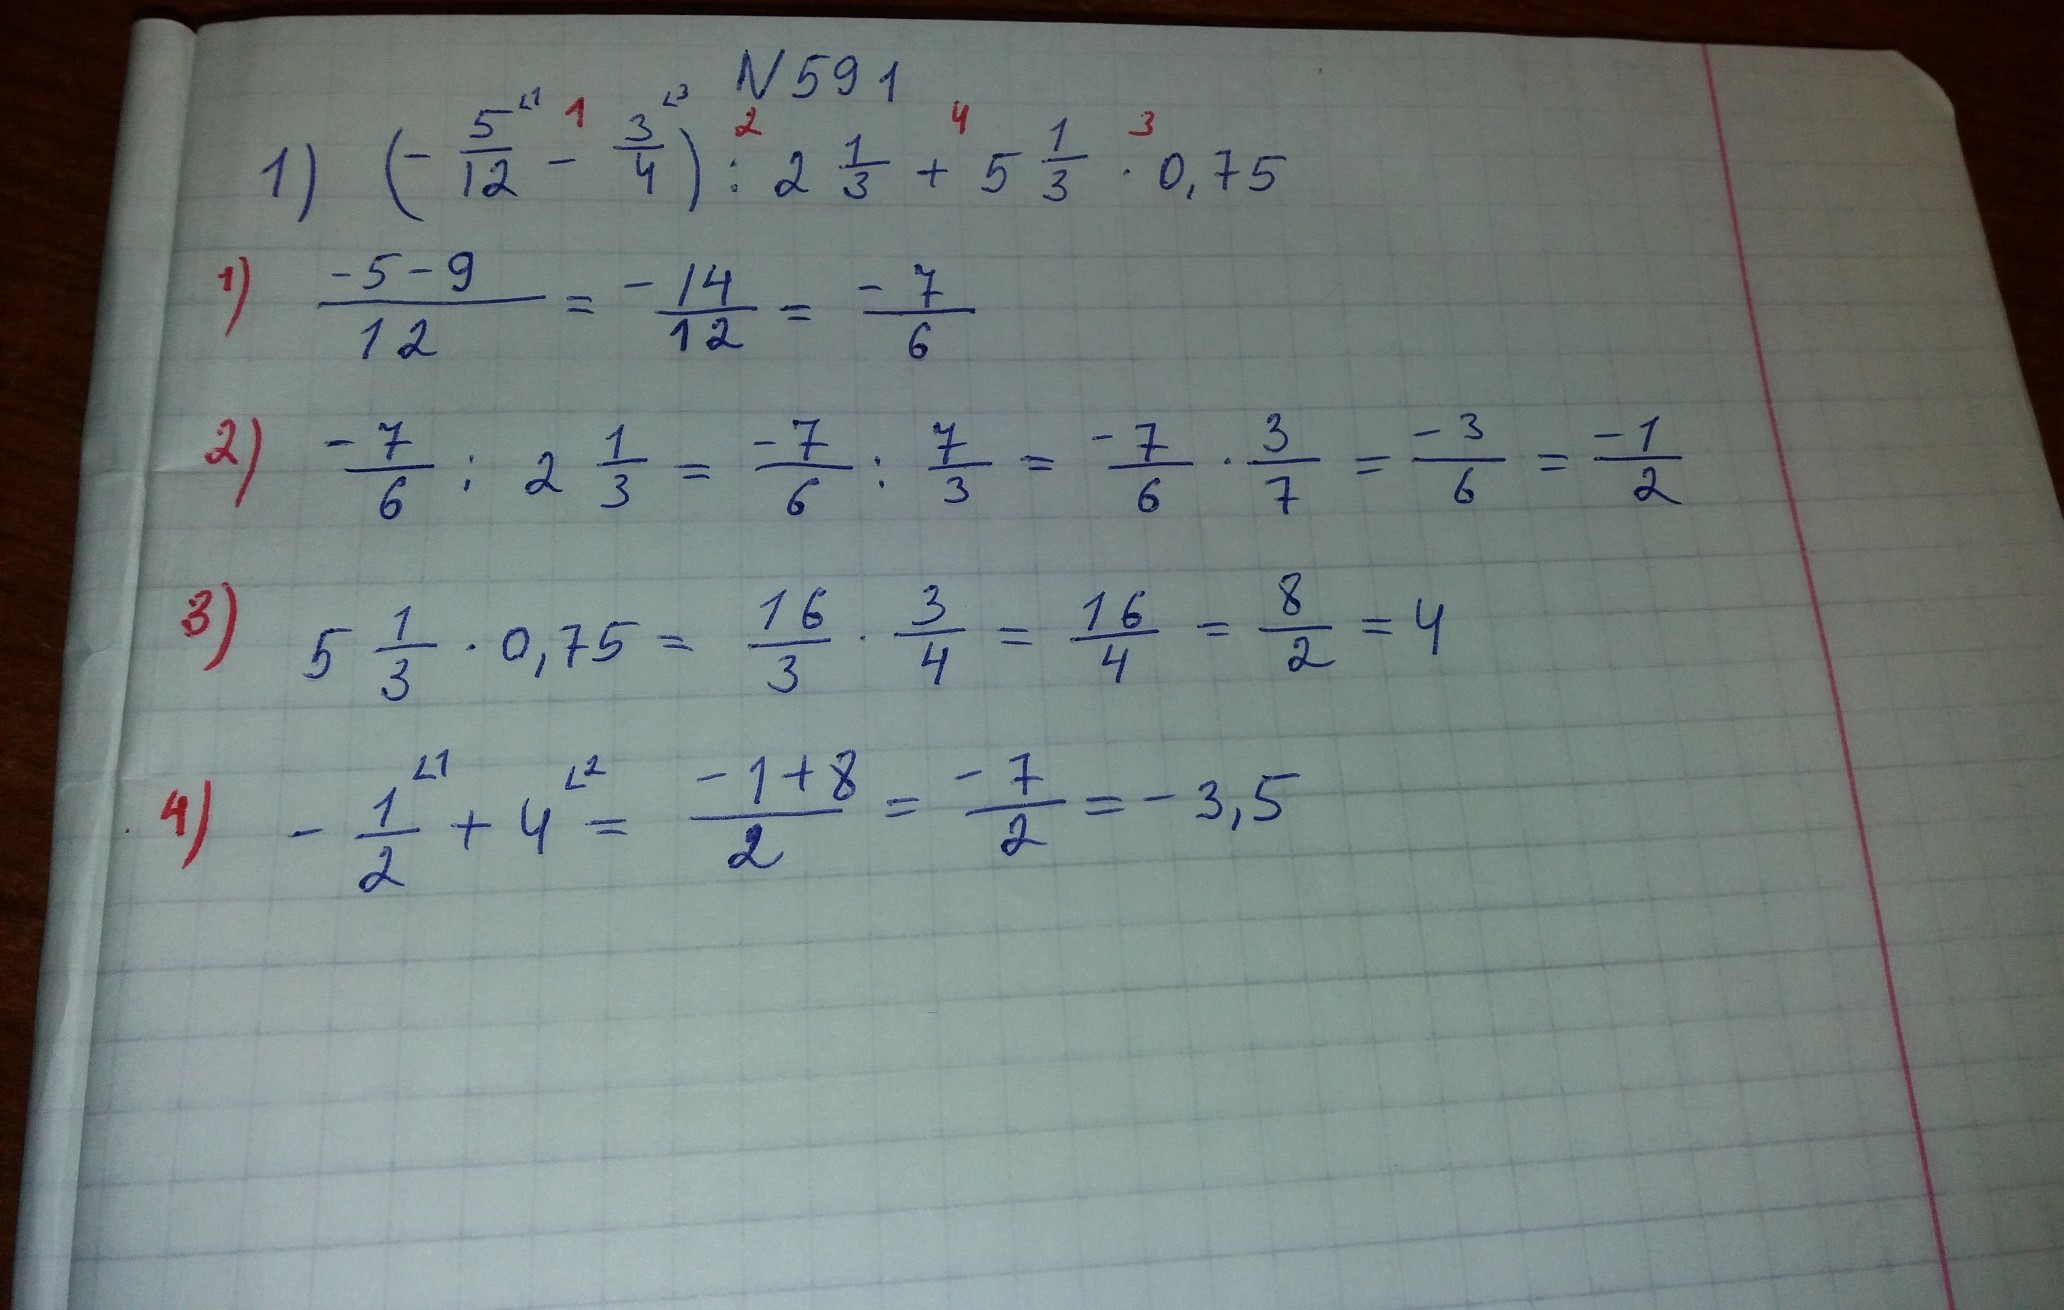 N 591
1) (- 5/12 - 3/4) : 2 1/3 + 5 1/3 · 0,75
1) (-5-9)/12 = -14/12 = -7/6
2) -7/6 : 2 1/3 = -7/6 : 7/3 = -7/6 · 3/7 = -3/6 = -1/2
3) 5 1/3 · 0,75 = 16/3 · 3/4 = 16/4 = 8/2 = 4
4) - 1/2 + 4 = (-1+8)/2 = -7/2 = -3,5